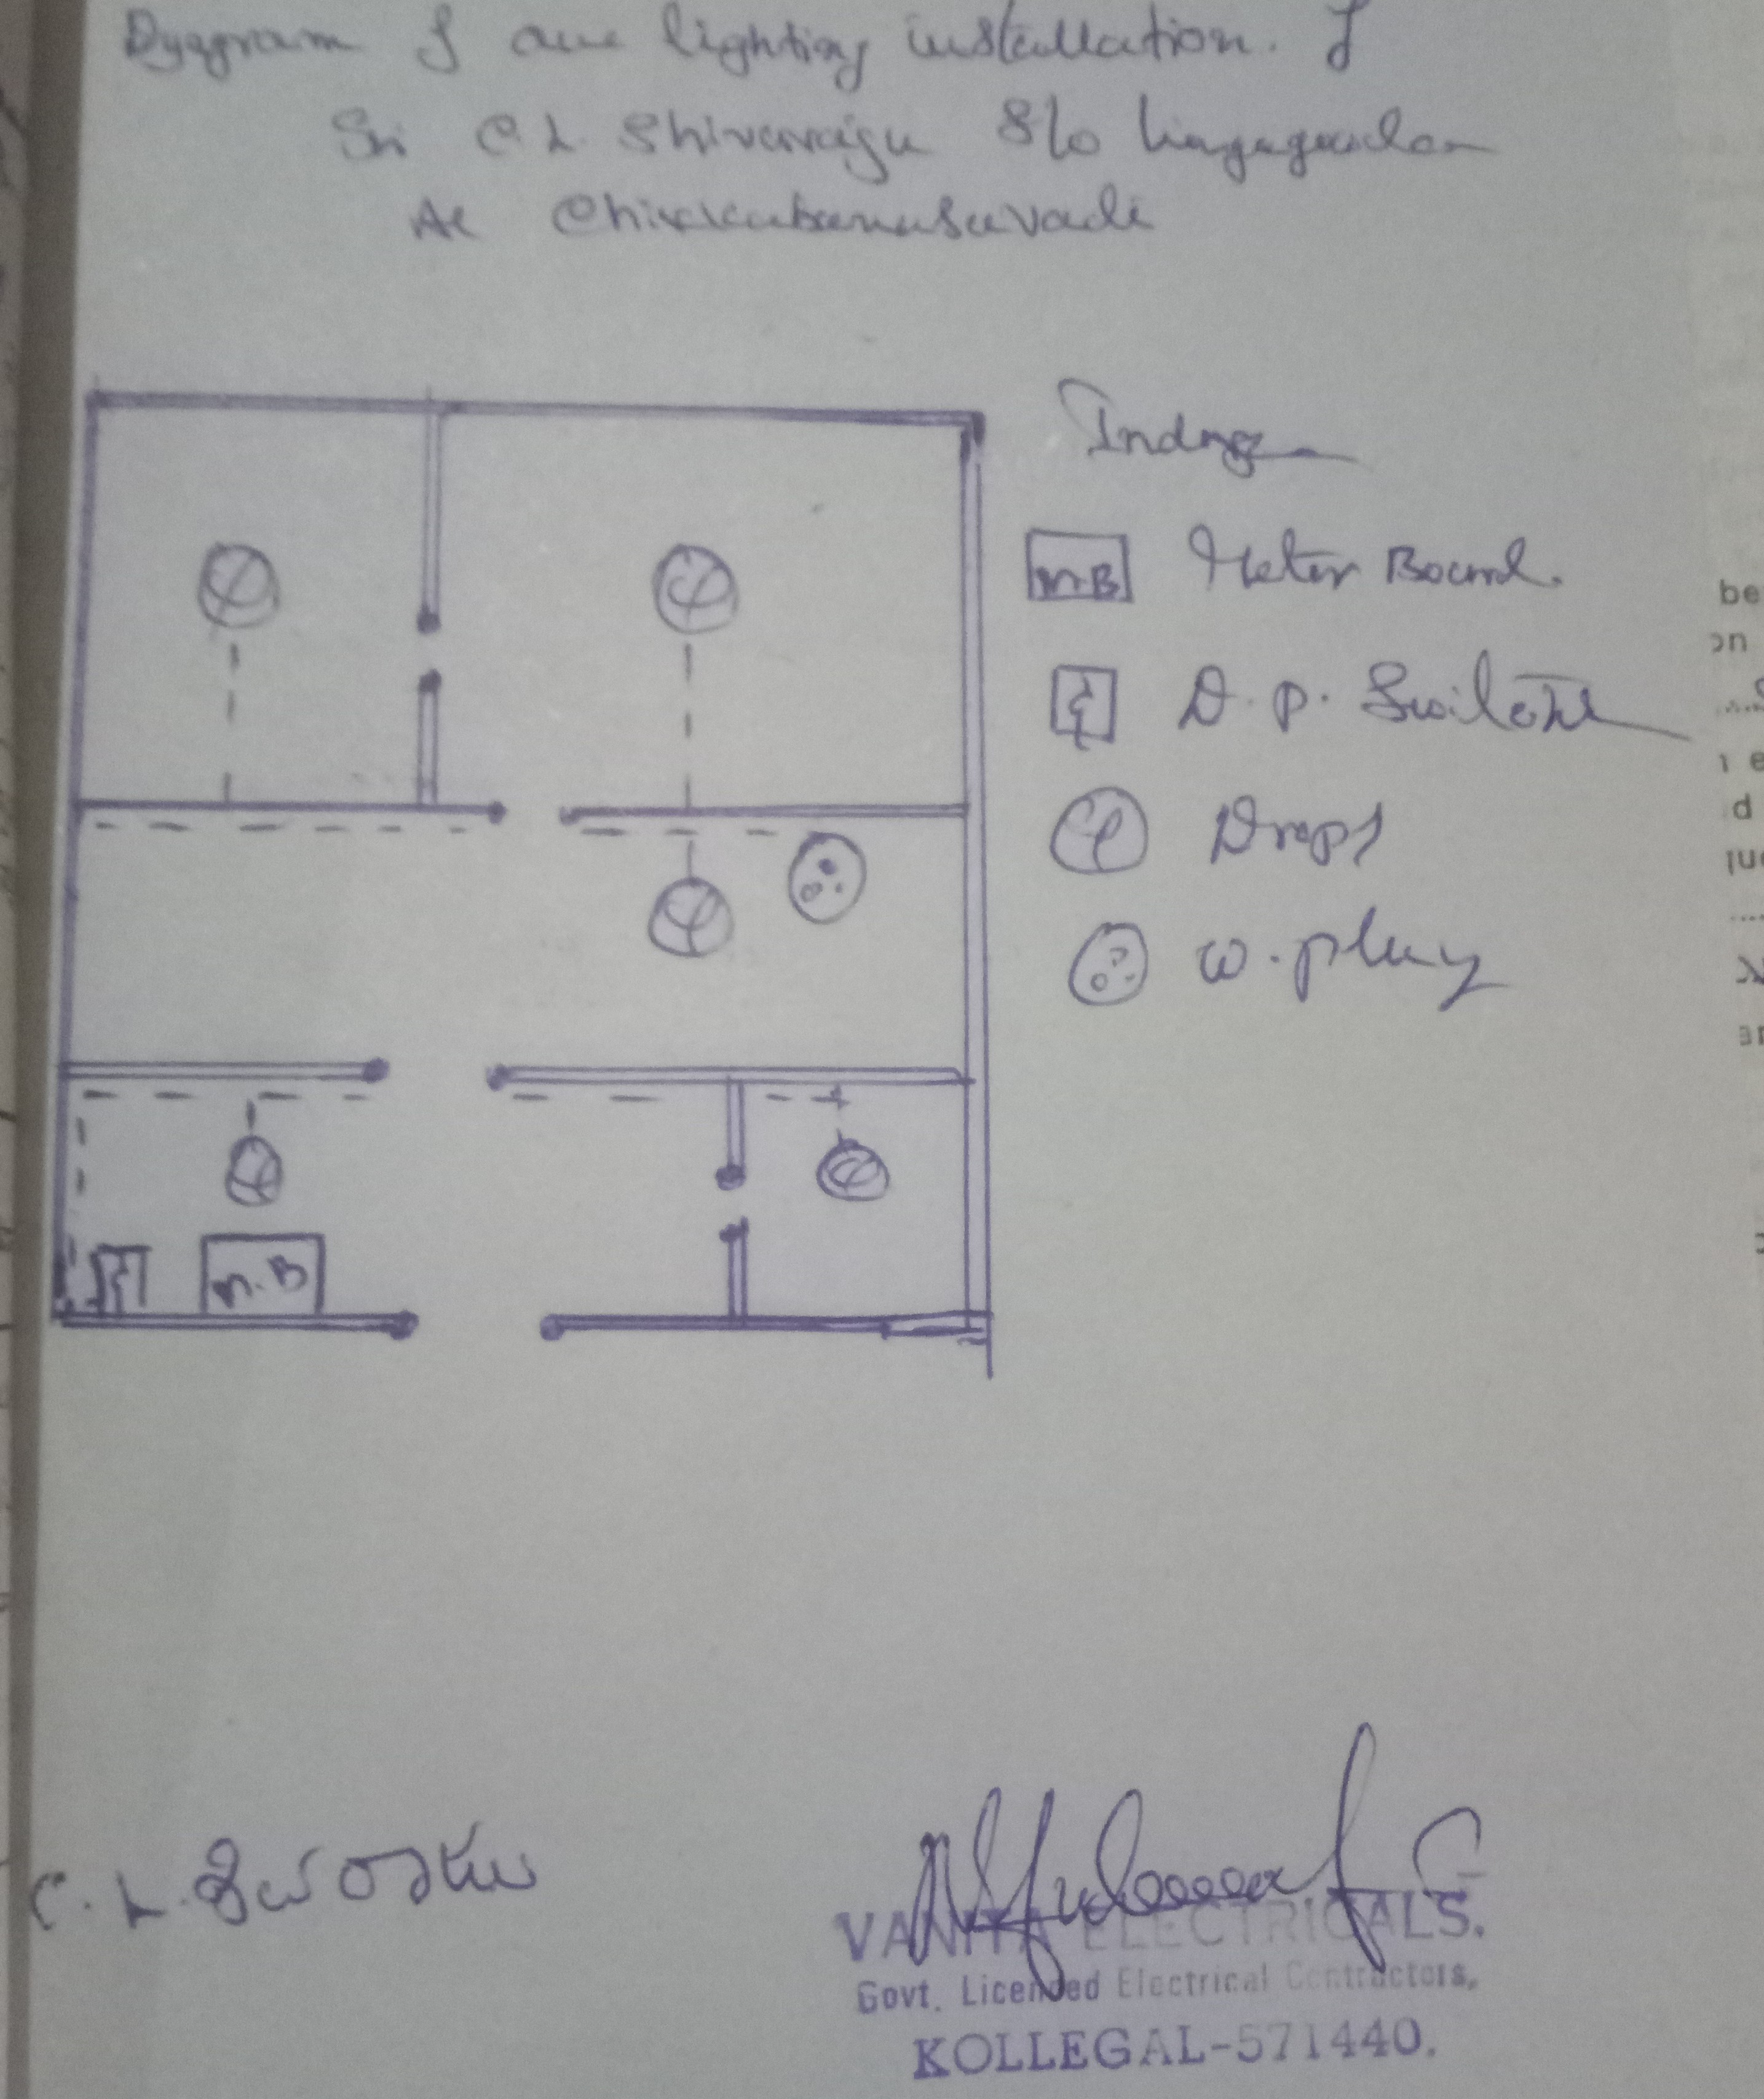 Dyagram of lighting installation. of
Sri C.L. Shivaraju S/o Lingegowda
At
Index
M.B Meter Board.
D.P. Switch
Drops
W.plug
M.B
C.L. ಶಿವರಾಜು
VANITA ELECTRICALS.
Govt. Licensed Electrical Contractors,
KOLLEGAL-571440.